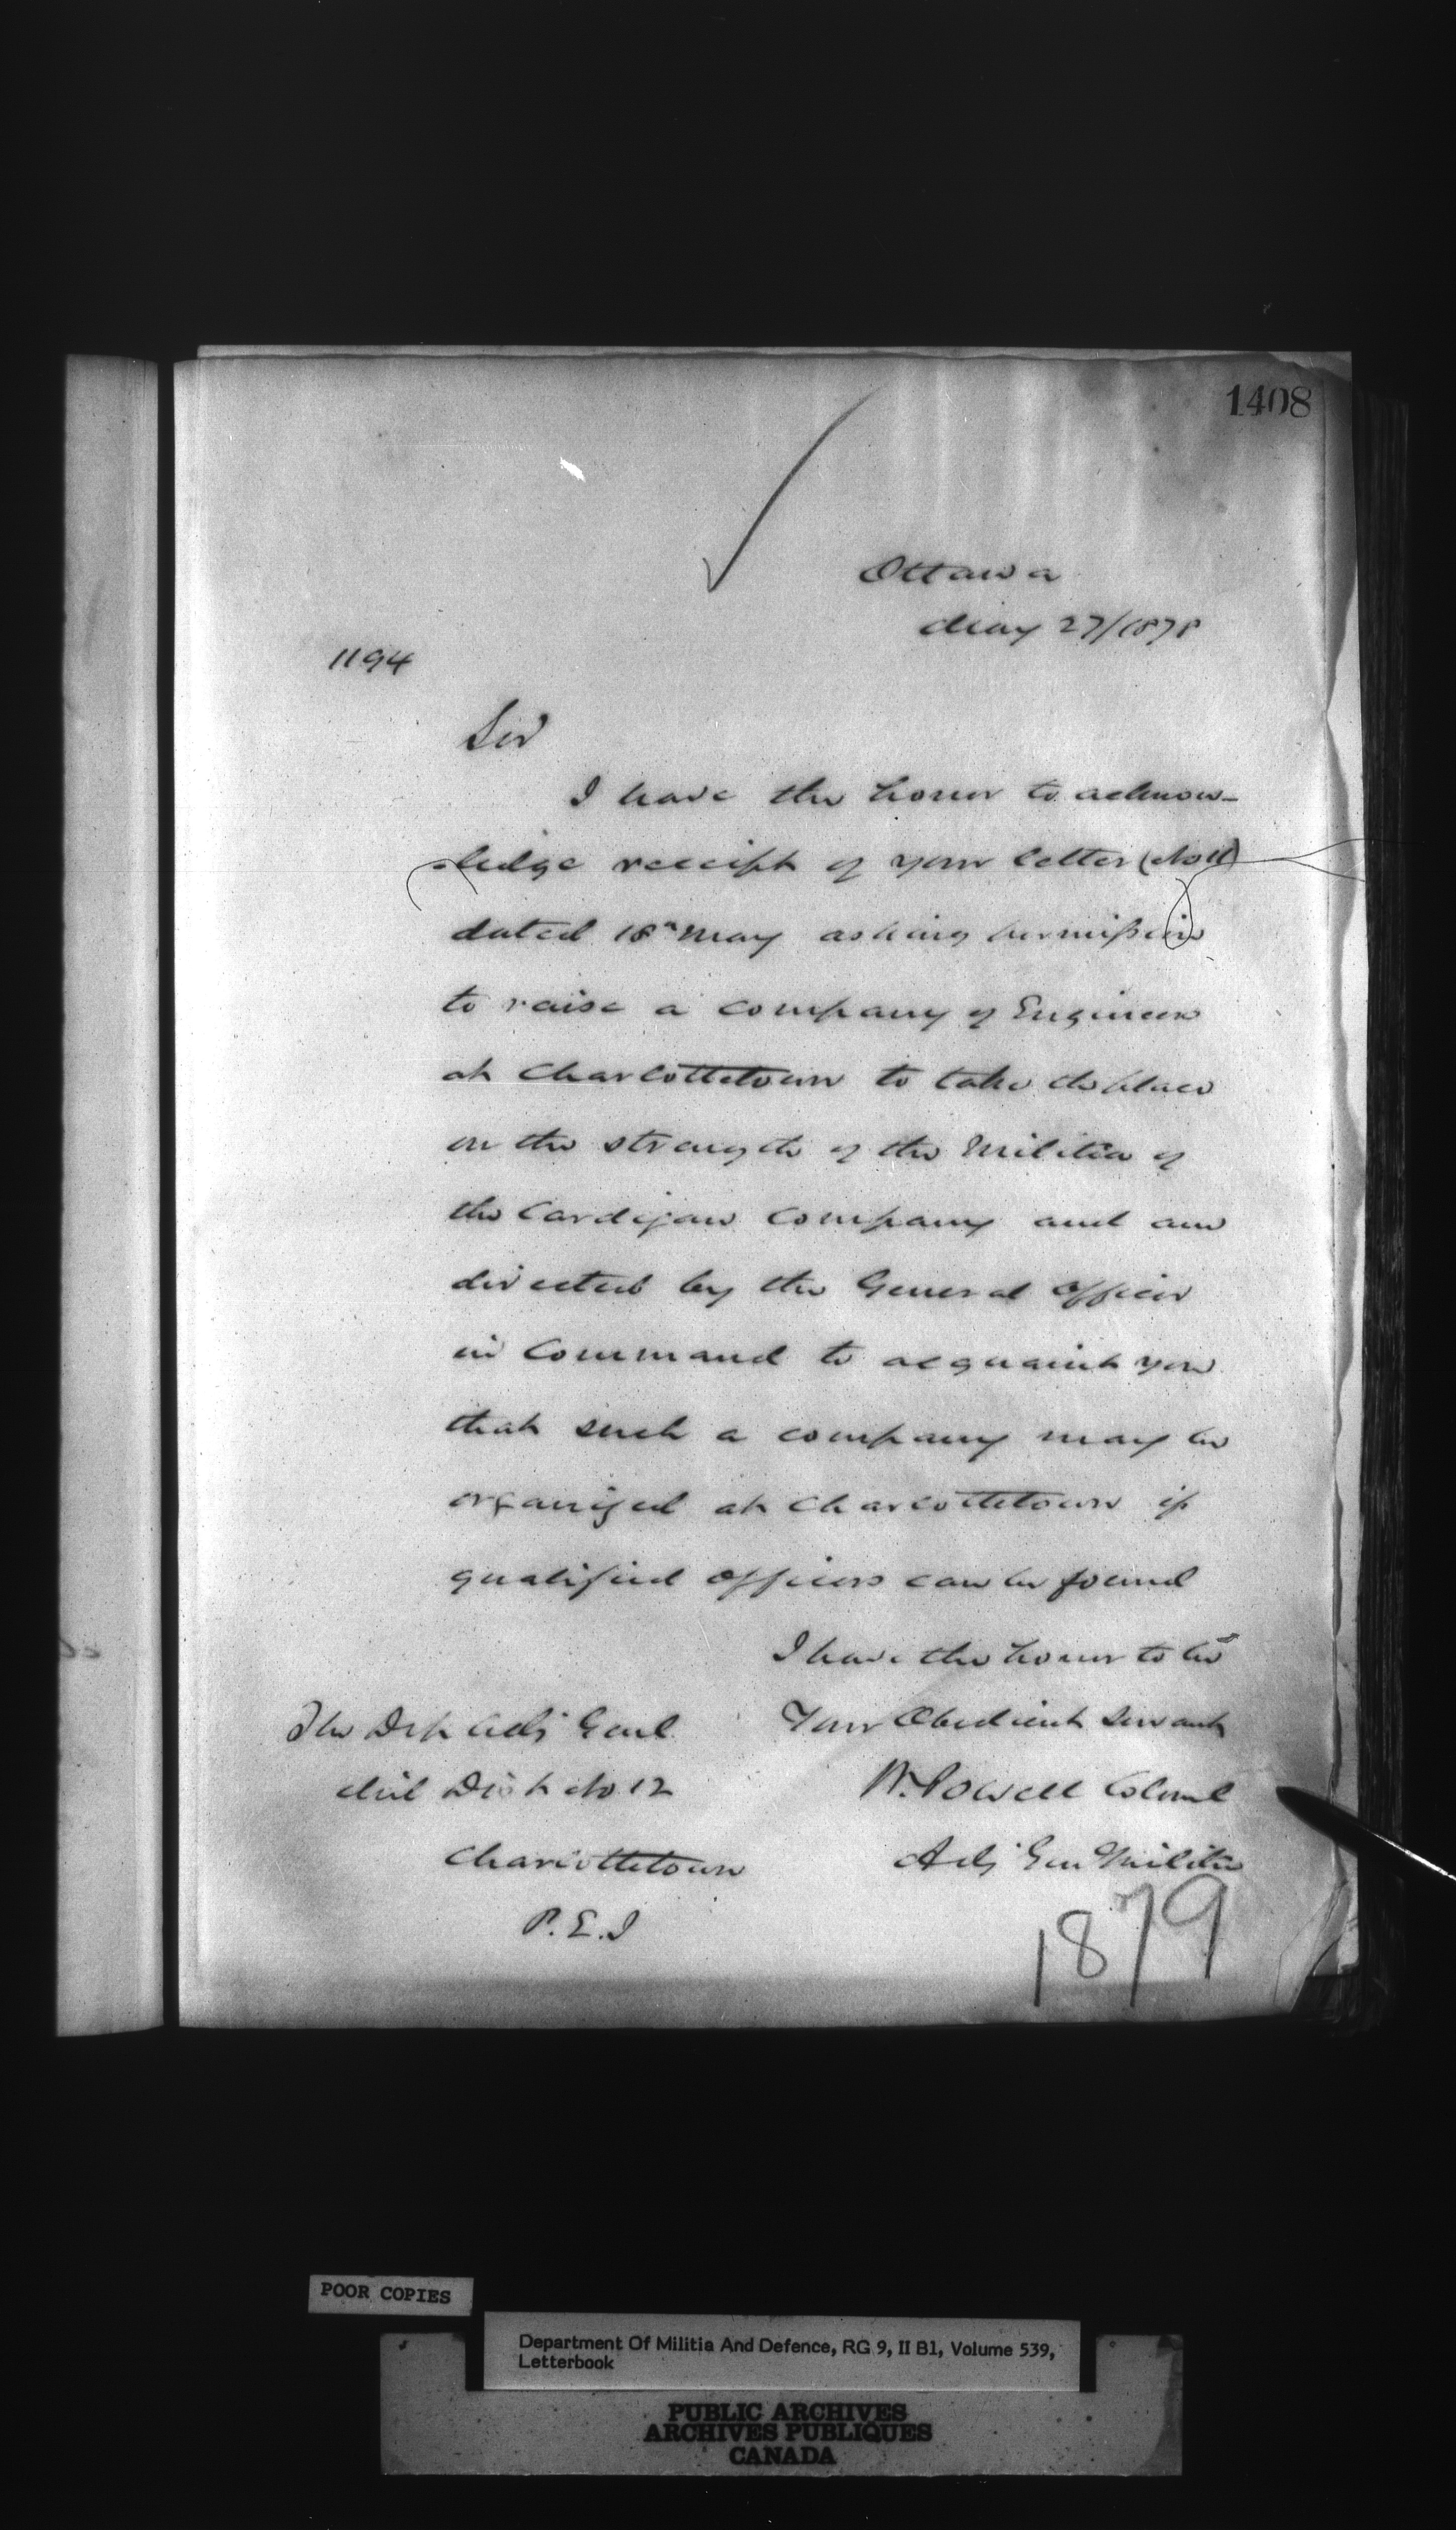 1408
Ottawa
May 27/1878
1194
Sir
I have the honor to acknow-
-ledge receipt of your letter (No 11)
dated 18th May asking permission
to raise a company of Engineers
at Charlottetown to take the place
on the strength of the Militia of
the Cardigan Company and am
directed by the General Officer
in Command to acquaint you
that such a company may be
organized at Charlottetown if
qualified officers can be found
I have the honor to be
Your Obedient Servant
W. Powell Colonel
Adj Gen Militia
The Dep Adj Genl
Mil Dist No 12
Charlottetown
P.E.I
1879
POOR COPIES
Department Of Militia And Defence, RG 9, II B1, Volume 539,
Letterbook
PUBLIC ARCHIVES
ARCHIVES PUBLIQUES
CANADA